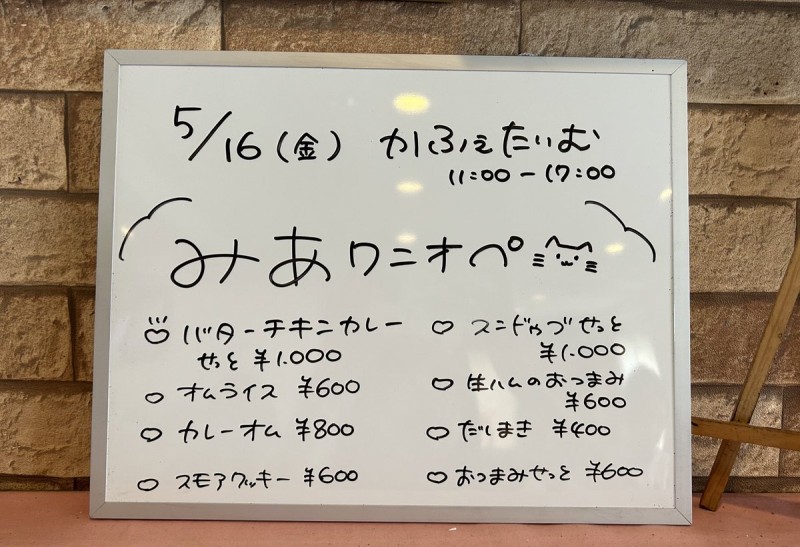 5/16(金) かふぇたいむ
11:00-17:00
みあワニオペ
バターチキンカレー
せっと ¥1.000
オムライス ¥600
カレーオム ¥800
スモアクッキー ¥600
スンドゥブせっと
¥1.000
生ハムのおつまみ
¥600
だしまき ¥400
おつまみせっと ¥600